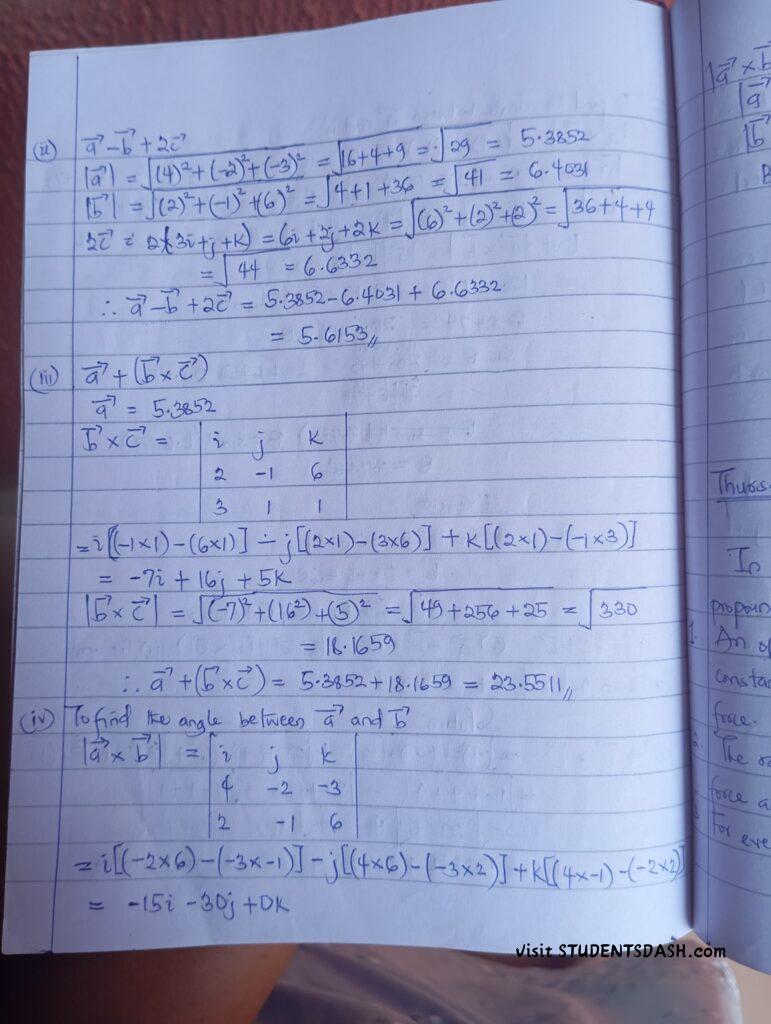 (ii) a⃗ - b⃗ + 2c⃗
|a⃗| = √(4)² + (-2)² + (-3)² = √16+4+9 = √29 = 5.3852
|b⃗| = √(2)² + (-1)² + (6)² = √4+1+36 = √41 = 6.4031
2c⃗ = 2(3i+j+k) = 6i+2j+2k = √(6)²+(2)²+(2)² = √36+4+4
= √44 = 6.6332
∴ a⃗ - b⃗ + 2c⃗ = 5.3852 - 6.4031 + 6.6332
= 5.6153//
(iii) a⃗ + (b⃗ × c⃗)
a⃗ = 5.3852
b⃗ × c⃗ = | i j k |
| 2 -1 6 |
| 3 1 1 |
= i[(-1×1) - (6×1)] - j[(2×1) - (3×6)] + k[(2×1) - (-1×3)]
= -7i + 16j + 5k
|b⃗ × c⃗| = √(-7)² + (16²) + (5)² = √49+256+25 = √330
= 18.1659
∴ a⃗ + (b⃗ × c⃗) = 5.3852 + 18.1659 = 23.5511//
(iv) To find the angle between a⃗ and b⃗
|a⃗ × b⃗| = | i j k |
| 4 -2 -3 |
| 2 -1 6 |
= i[(-2×6) - (-3×-1)] - j[(4×6) - (-3×2)] + k[(4×-1) - (-2×2)]
= -15i - 30j + 0k
|a⃗ × b⃗
|a⃗
|b⃗
Thurs
In
1. An
force.
2. The
force a
3 For eve
visit STUDENTSDASH.com